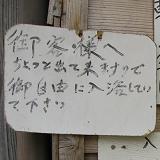 御客様へ
ちょっと出て来ますので
御自由に入浴してい
て下さい